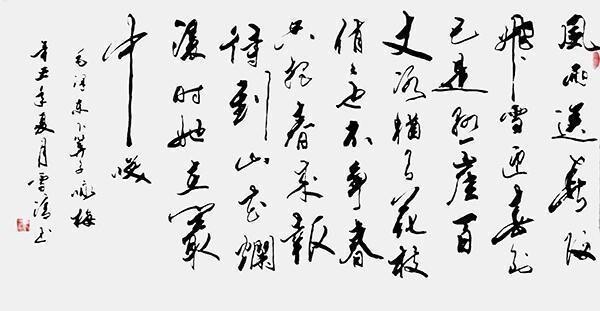 風雨送春归
飛雪迎春到
已是懸崖百
丈冰猶有花枝
俏俏也不爭春
只把春来報
待到山花爛
漫时她在叢
中笑
毛泽东卜算子咏梅
辛丑年夏月雪书